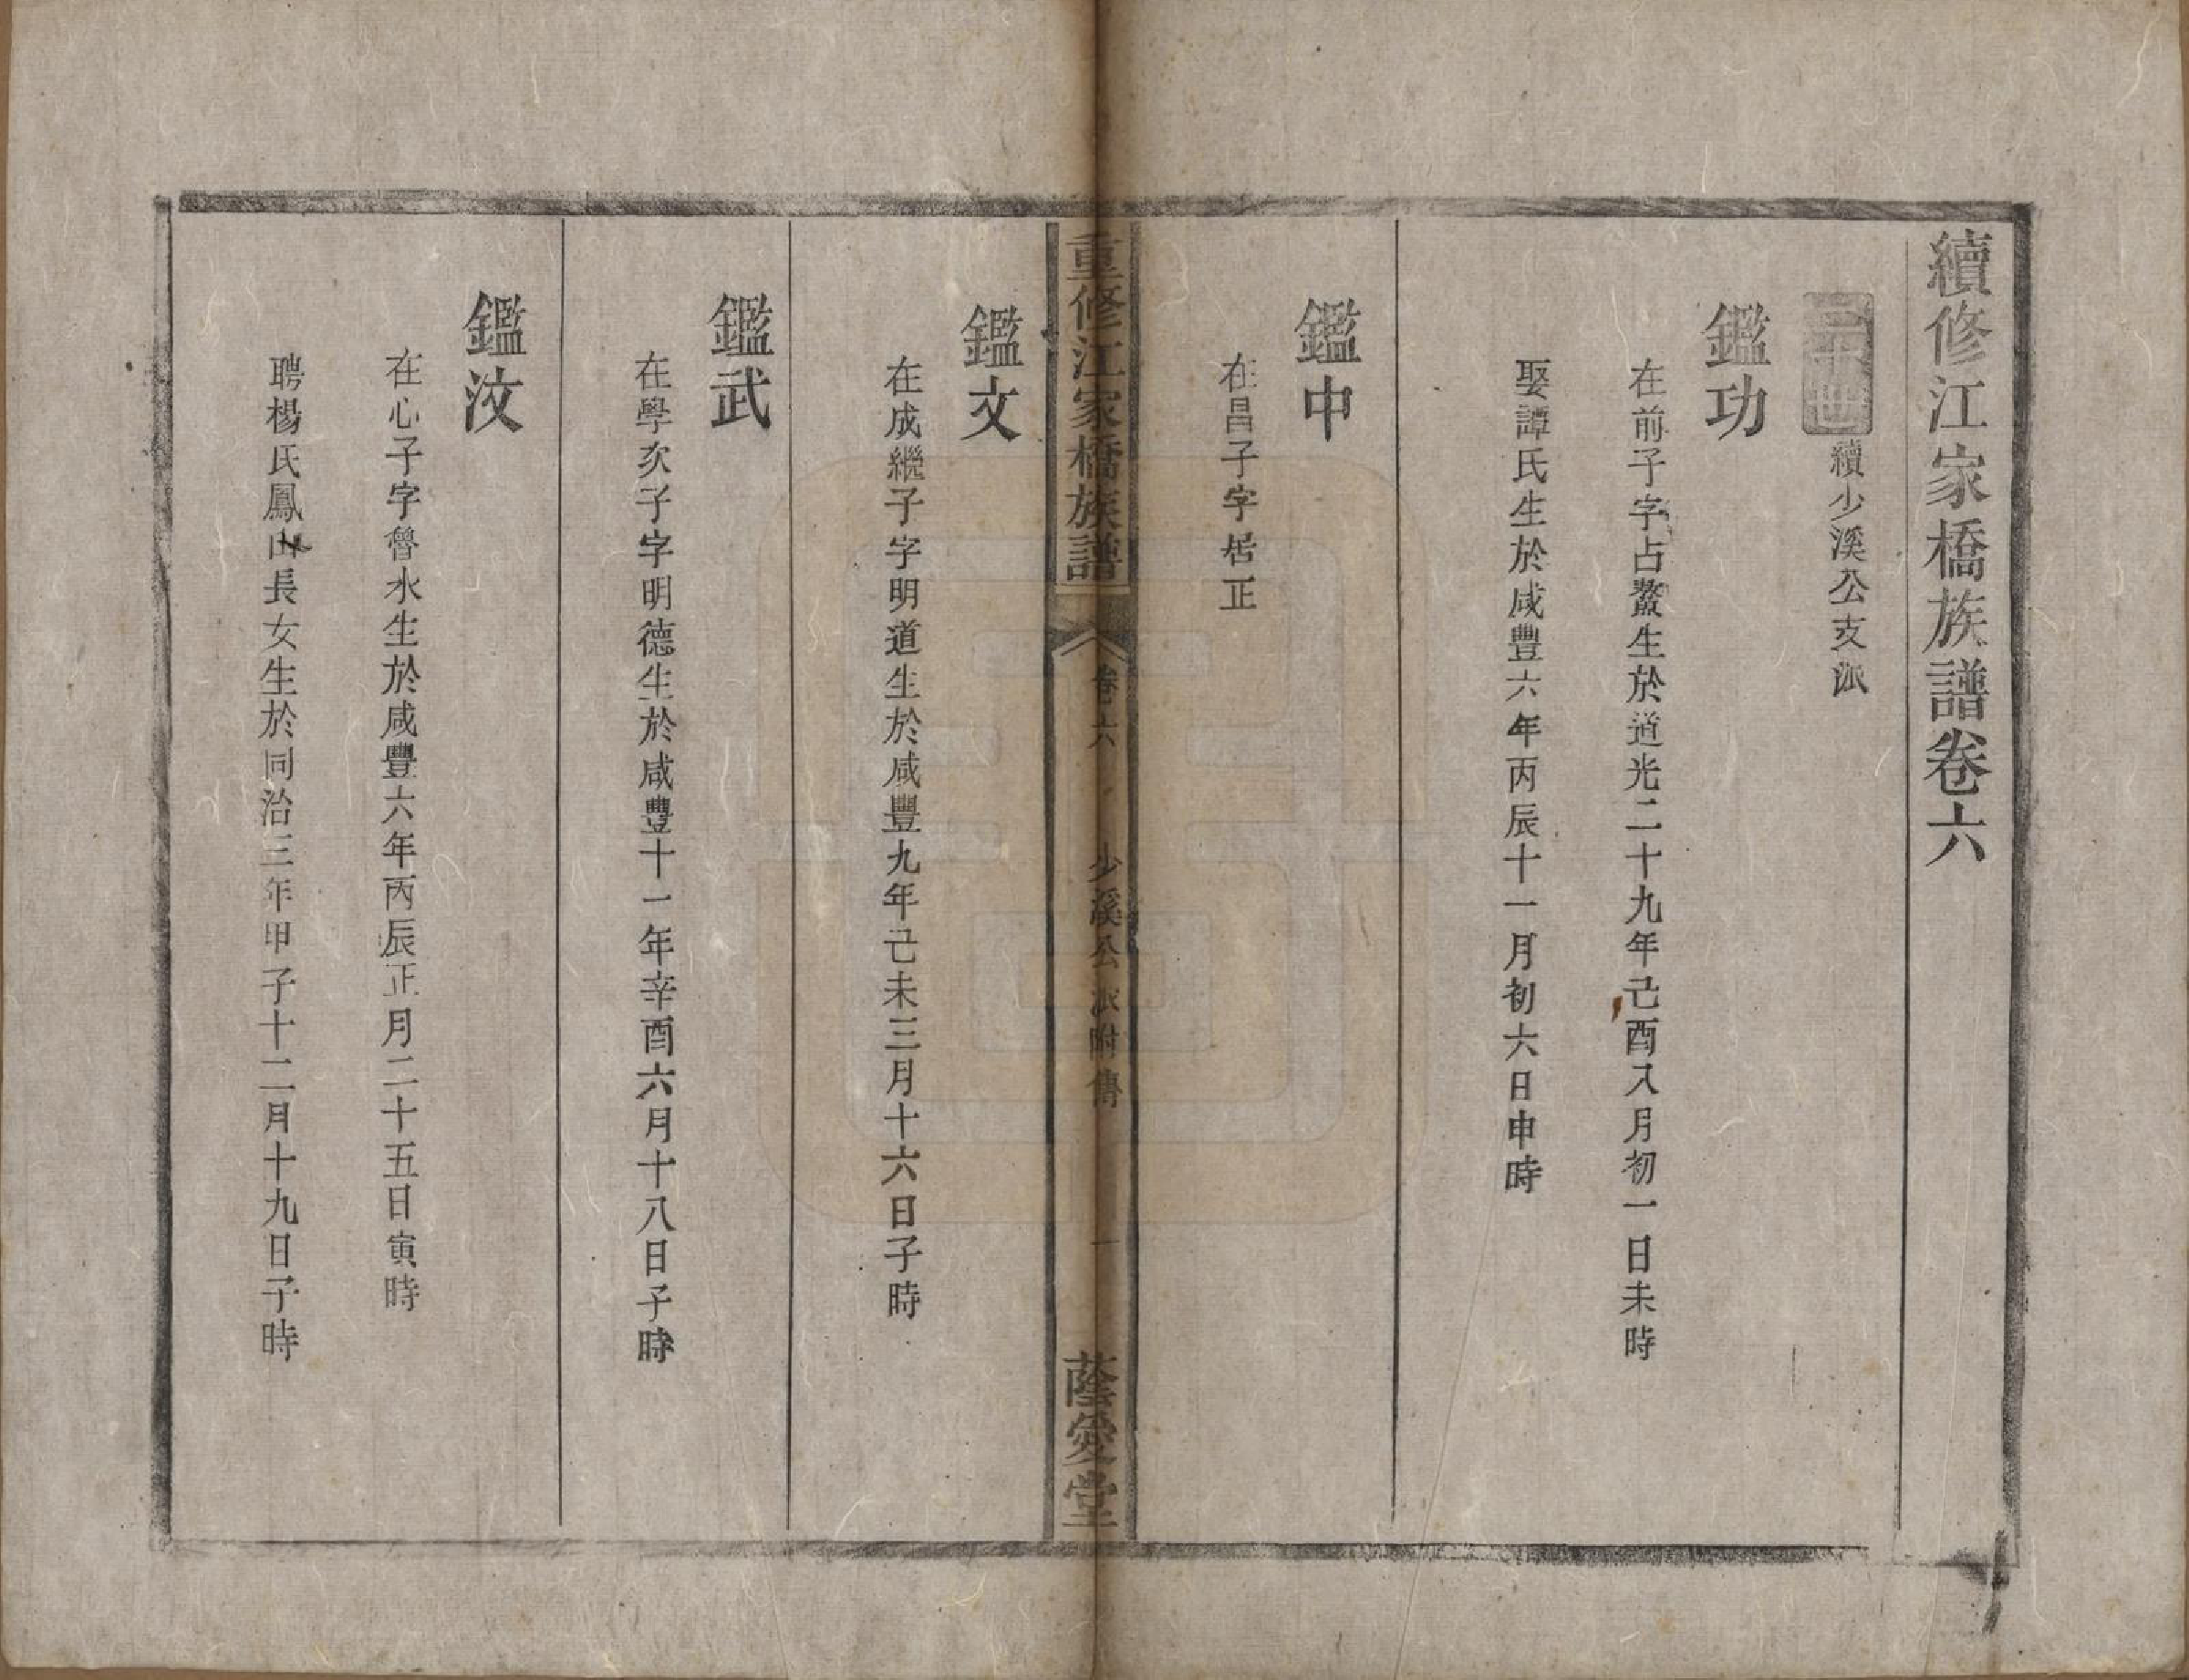 續修江家橋族譜卷六
二十世
續少溪公支派
鑑功
在前子字占鰲生於道光二十九年己酉八月初一日未時
娶譚氏生於咸豐六年丙辰十一月初六日申時
鑑中
在昌子字居正
重修江家橋族譜
卷六
少溪公派附傳
一
蔭愛堂
鑑文
在成繼子字明道生於咸豐九年己未三月十六日子時
鑑武
在學次子字明德生於咸豐十一年辛酉六月十八日子時
鑑汶
在心子字魯水生於咸豐六年丙辰正月二十五日寅時
聘楊氏鳳山長女生於同治三年甲子十二月十九日子時